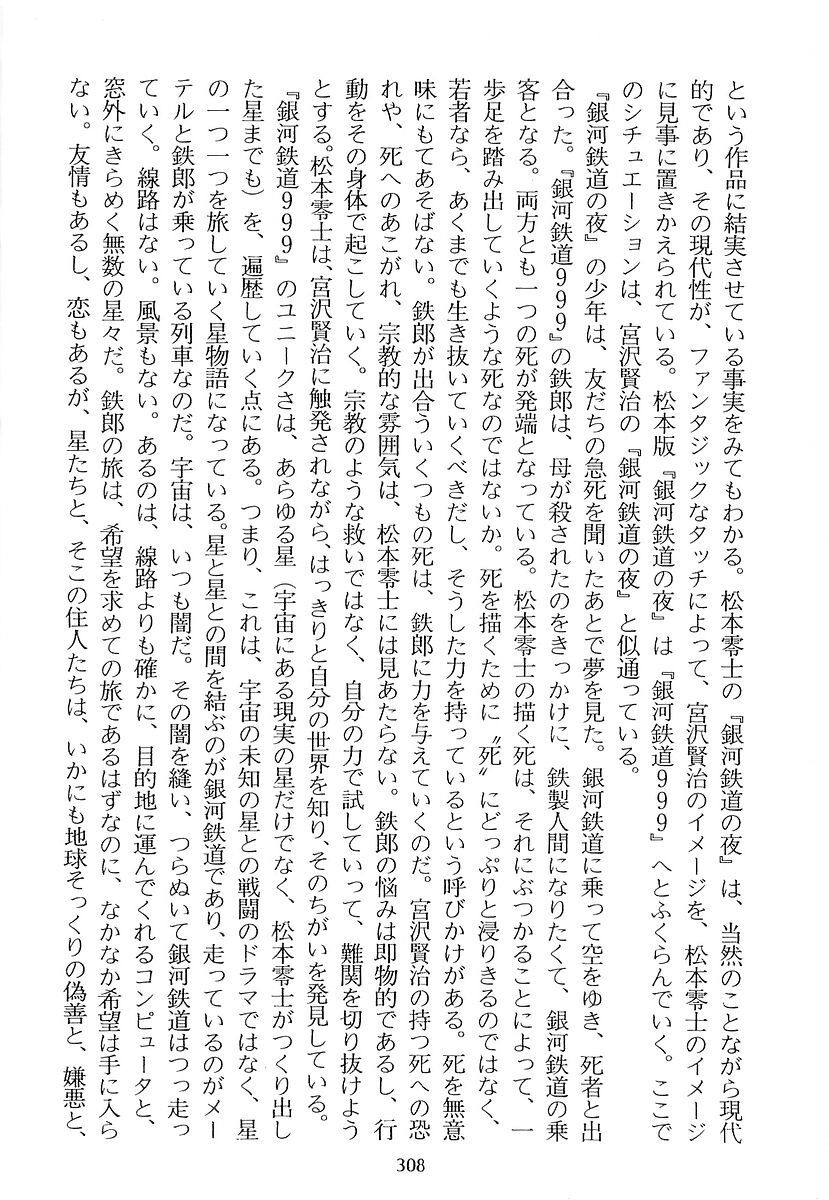 という作品に結実させている事実をみてもわかる。松本零士の『銀河鉄道の夜』は、当然のことながら現代
的であり、その現代性が、ファンタジックなタッチによって、宮沢賢治のイメージを、松本零士のイメージ
に見事に置きかえられている。松本版『銀河鉄道の夜』は『銀河鉄道999』へとふくらんでいく。ここで
のシチュエーションは、宮沢賢治の『銀河鉄道の夜』と似通っている。
『銀河鉄道の夜』の少年は、友だちの急死を聞いたあとで夢を見た。銀河鉄道に乗って空をゆき、死者と出
合った。『銀河鉄道999』の鉄郎は、母が殺されたのをきっかけに、鉄製人間になりたくて、銀河鉄道の乗
客となる。両方とも一つの死が発端となっている。松本零士の描く死は、それにぶつかることによって、一
歩足を踏み出していくような死なのではないか。死を描くために〝死〟にどっぷりと浸りきるのではなく、
若者なら、あくまでも生き抜いていくべきだし、そうした力を持っているという呼びかけがある。死を無意
味にもてあそばない。鉄郎が出合ういくつもの死は、鉄郎に力を与えていくのだ。宮沢賢治の持つ死への恐
れや、死へのあこがれ、宗教的な雰囲気は、松本零士には見あたらない。鉄郎の悩みは即物的であるし、行
動をその身体で起こしていく。宗教のような救いではなく、自分の力で試していって、難関を切り抜けよう
とする。松本零士は、宮沢賢治に触発されながら、はっきりと自分の世界を知り、そのちがいを発見している。
『銀河鉄道999』のユニークさは、あらゆる星（宇宙にある現実の星だけでなく、松本零士がつくり出し
た星までも）を、遍歴していく点にある。つまり、これは、宇宙の未知の星との戦闘のドラマではなく、星
の一つ一つを旅していく星物語になっている。星と星との間を結ぶのが銀河鉄道であり、走っているのがメー
テルと鉄郎が乗っている列車なのだ。宇宙は、いつも闇だ。その闇を縫い、つらぬいて銀河鉄道はつっ走っ
ていく。線路はない。風景もない。あるのは、線路よりも確かに、目的地に運んでくれるコンピュータと、
窓外にきらめく無数の星々だ。鉄郎の旅は、希望を求めての旅であるはずなのに、なかなか希望は手に入ら
ない。友情もあるし、恋もあるが、星たちと、そこの住人たちは、いかにも地球そっくりの偽善と、嫌悪と、
308